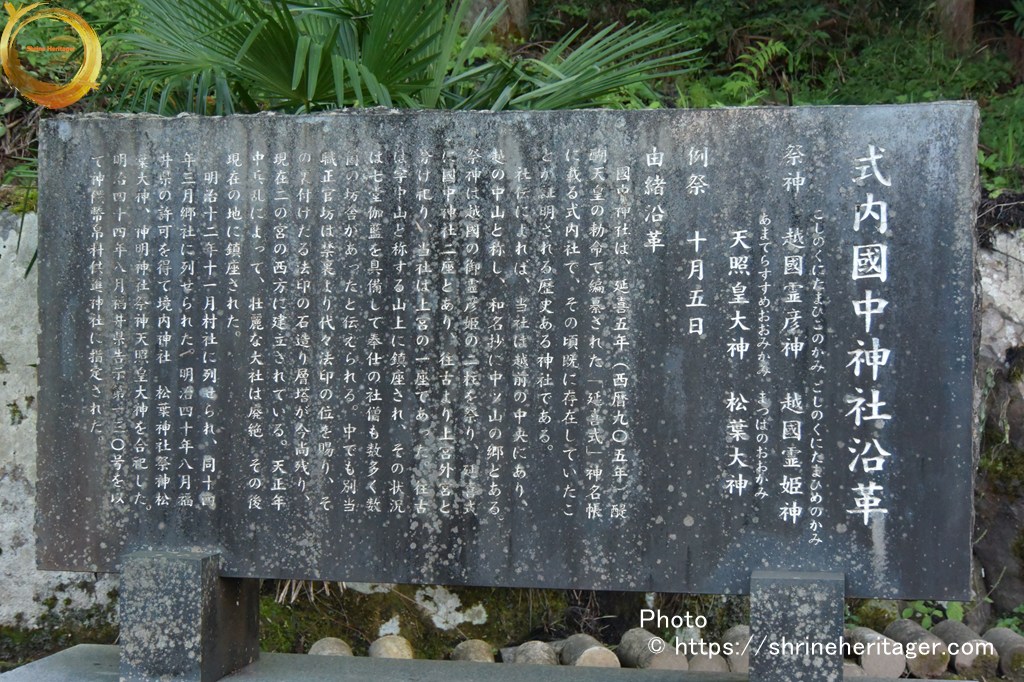 式内國中神社沿革
こしのくにたまひこのかみ こしのくにたまひめのかみ
祭神 越國霊彦神 越國霊姫神
あまてらすすめおおみかみ まつばのおおかみ
天照皇大神 松葉大神
例祭 十月五日
由緒沿革
國中神社は、延喜五年(西暦九〇五年)醍
醐天皇の勅令で編纂された「延喜式」神名帳
に載る式内社で、その頃既に存在していたこ
とが証明される歴史ある神社である。
社伝によれば、当社は越前の中央にあり、
越の中山と称し、和名抄に中ッ山の郷とある。
祭神は越國の御霊彦姫の二柱を祭り、延喜式
に國中神社二座とあり、往古より上宮外宮と
分け祀り、当社は上宮の一座であった。往古
は字中山と称する山上に鎮座され、その状況
は七堂伽藍を具備して奉仕の社僧も数多く数
箇の坊舎があったと伝えられる。中でも別当
職正官坊は禁裏より代々法印の位を賜り、そ
の 付けたる法印の石造り層塔が今尚残り、
現在二の宮の西方に建立されている。天正年
中兵乱によって、壮麗な大社は廃絶 その後
現在の地に鎮座された。
明治十二年十一月村社に列せられ、同十四
年三月郷社に列せられた。明治四十年八月福
井県の許可を得て境内神社 松葉神社祭神松
葉大神、神明神社祭神天照皇大神を合祀した。
明治四十四年八月福井県告示第二三〇号を以
て神饌幣帛料供進神社に指定された。
Shrine Heritager
Photo
© https://shrineheritager.com